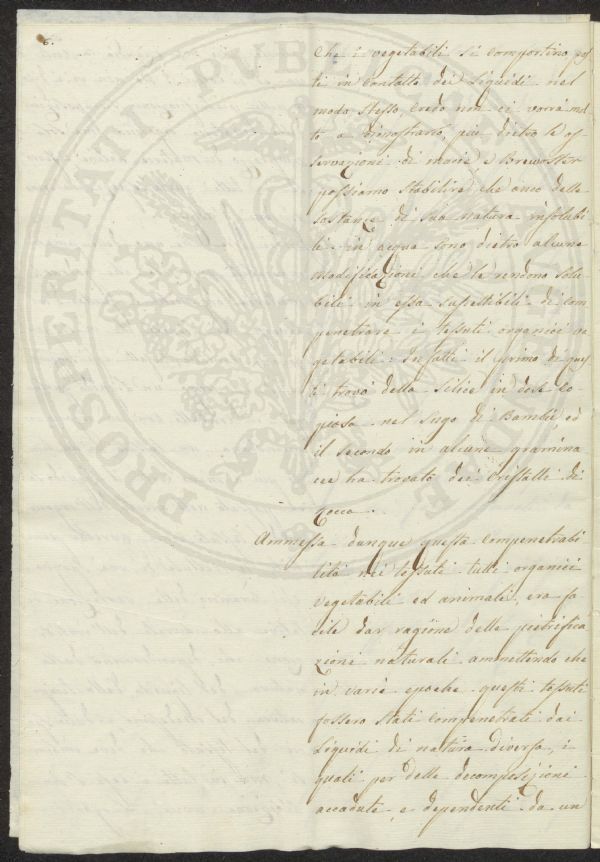 6.
Che i vegetabili si comportino pos
ti in contatto dei liquidi nel
modo stesso, credo non ci vorrà mol
to a dimostrarlo, più dietro le os
servazioni di e Brewster
possiamo stabilire che anco delle
sostanze di sua natura insolubi
li in acqua sono dietro alcune
modificazioni che le rendono solu
bili in essa suscettibili di com
penetrare i tessuti organici ve
getabili. Infatti il primo di ques
ti trovò della silice in dose co-
piosa nel sugo di Bambù, ed
il secondo in alcune gramina
cee ha trovato dei cristalli di
rocca.
Ammessa dunque questa compenetrabi
lità nei tessuti tutti organici
vegetabili ed animali, era fa
cile dar ragione delle pietrifica
zioni naturali ammettendo che
in varie epoche questi tessuti
fossero stati compenetrati dai
liquidi di natura diversa, i
quali per delle decomposizioni
accadute, e dipendenti da un
PROSPERITATI PUBLICAE